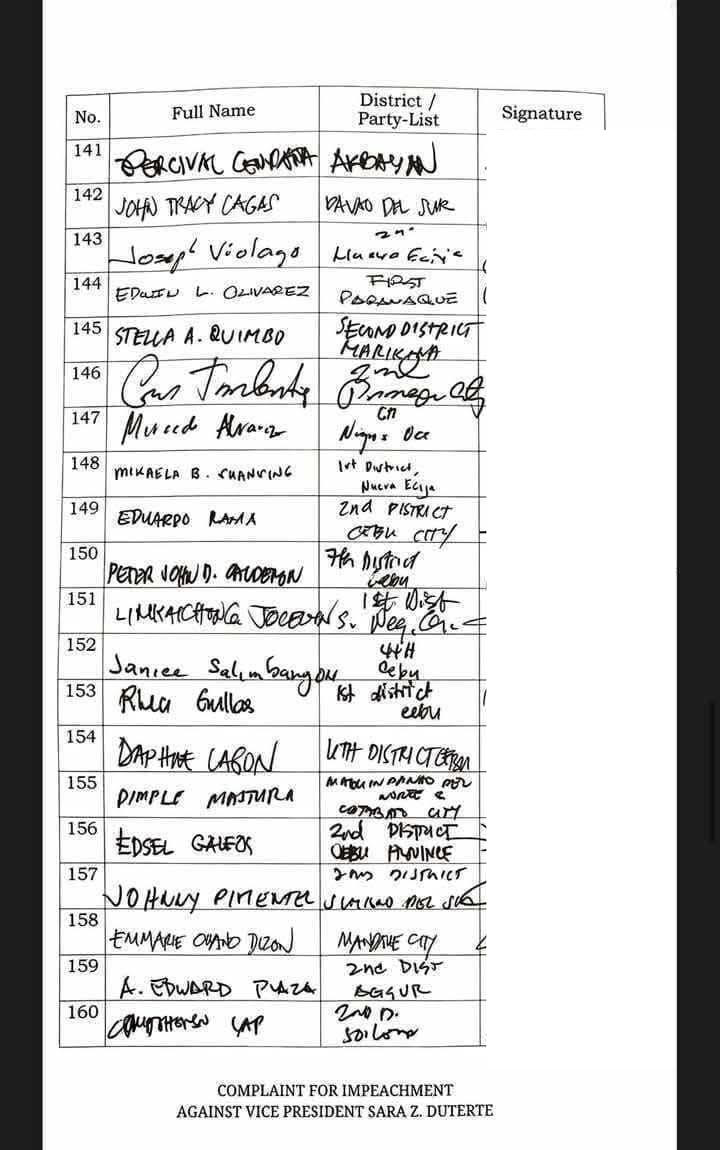 No. Full Name District / Party-List Signature
141 PERCIVAL CENDAÑA AKBAYAN
142 JOHN TRACY CAGAS DAVAO DEL SUR
143 Joseph Violago 2nd Nueva Ecija
144 EDWIN L. OLIVAREZ FIRST PARAÑAQUE
145 STELLA A. QUIMBO SECOND DISTRICT MARIKINA
146 2nd
147 Alvarez 6th Negros Occ
148 MIKAELA B. SUANSING 1st District, Nueva Ecija
149 EDUARDO RAMA 2nd DISTRICT CEBU CITY
150 PETER JOHN D. CALDERON 7th District Cebu
151 LIMKAICHONG JOCELYN S. 1st Dist Neg. Or.
152 Janice Salimbangon 4th Cebu
153 Rhea Gullas 1st district cebu
154 DAPHNE LAGON 6TH DISTRICT CEBU
155 DIMPLE MASTURA MAGUINDANAO DEL NORTE & COTABATO CITY
156 EDSEL GALEOS 2nd DISTRICT CEBU PROVINCE
157 JOHNNY PIMENTEL 2ND DISTRICT SURIGAO DEL SUR
158 EMMARIE OUANO DIZON MANDAUE CITY
159 A. EDWARD PLAZA 2nd DIST AGSUR
160 YAP 2ND D.
COMPLAINT FOR IMPEACHMENT
AGAINST VICE PRESIDENT SARA Z. DUTERTE